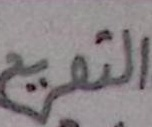 التفريع